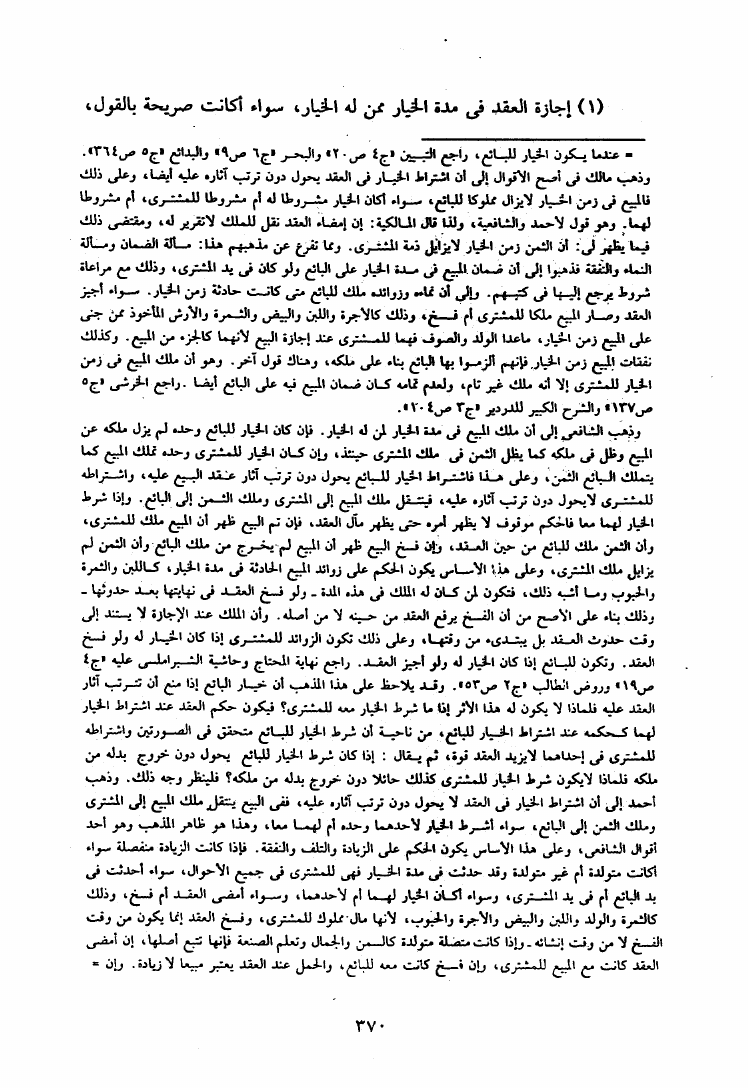 (١) إجازة العقد فى مدة الخيار ممن له الخيار، سواء أكانت صريحة بالقول،
= عندما يكون الخيار للبائع، راجع التبيين «ج٤ ص٢٠» والبحر «ج٦ ص٩» والبدائع «ج٥ ص٣٦٤».
وذهب مالك فى أصح الأقوال إلى أن اشتراط الخيار فى العقد يحول دون ترتب آثاره عليه أيضا، وعلى ذلك
فالمبيع فى زمن الخيار لايزال مملوكا للبائع، سواء أكان الخيار مشروطا له أم مشروطا للمشترى، أم مشروطا
لهما. وهو قول لاحمد والشافعية، ولذا قال المالكية: إن إمضاء العقد نقل للملك لاتقرير له، ومقتضى ذلك
فيما يظهر لى: أن الثمن زمن الخيار لايزايل ذمة المشترى. ومما تفرع عن مذهبهم هذا: مسألة الضمان ومسألة
النماء والنفقة فذهبوا إلى أن ضمان المبيع فى مدة الخيار على البائع ولو كان فى يد المشترى، وذلك مع مراعاة
شروط يرجع إليها فى كتبهم. وإلى أن نماءه وزوائده ملك للبائع متى كانت حادثة زمن الخيار. سواء أجيز
العقد وصار المبيع ملكا للمشترى أم فسخ، وذلك كالأجرة واللبن والبيض والثمرة والأرش المأخوذ ممن جنى
على المبيع زمن الخيار، ماعدا الولد والصوف فهما للمشترى عند إجازة البيع لأنهما كالجزء من المبيع. وكذلك
نفقات المبيع زمن الخيار. فإنهم ألزموا بها البائع بناء على ملكه، وهناك قول آخر. وهو أن ملك المبيع فى زمن
الخيار للمشترى إلا أنه ملك غير تام، ولعدم تمامه كان ضمان المبيع فيه على البائع أيضا. راجع الخرشى «ج٥
ص١٣٧» والشرح الكبير للدردير «ج٣ ص٢٠٤».
وذهب الشافعى إلى أن ملك المبيع فى مدة الخيار لمن له الخيار. فإن كان الخيار للبائع وحده لم يزل ملكه عن
المبيع وظل فى ملكه كما يظل الثمن فى ملك المشترى حينئذ، وإن كان الخيار للمشترى وحده تملك المبيع كما
يتملك البائع الثمن، وعلى هذا فاشتراط الخيار للبائع يحول دون ترتب آثار عقد البيع عليه، واشتراطه
للمشترى لايحول دون ترتب آثاره عليه، فينتقل ملك المبيع إلى المشترى وملك الثمن إلى البائع. وإذا شرط
الخيار لهما معا فالحكم موقوف لا يظهر أمره حتى يظهر مآل العقد، فإن تم البيع ظهر أن المبيع ملك للمشترى،
وأن الثمن ملك للبائع من حين العقد، وإن فسخ البيع ظهر أن المبيع لم يخرج من ملك البائع وأن الثمن لم
يزايل ملك المشترى، وعلى هذا الأساس يكون الحكم على زوائد المبيع الحادثة فى مدة الخيار، كاللبن والثمرة
والحبوب وما أشبه ذلك، فتكون لمن كان له الملك فى هذه المدة ـ ولو فسخ العقد فى نهايتها بعد حدوثها ـ
وذلك بناء على الأصح من أن الفسخ يرفع العقد من حينه لا من أصله. وأن الملك عند الإجازة لا يستند إلى
وقت حدوث العقد بل يبتدىء من وقتها، وعلى ذلك تكون الزوائد للمشترى إذا كان الخيار له ولو فسخ
العقد. وتكون للبائع إذا كان الخيار له ولو أجيز العقد. راجع نهاية المحتاج وحاشية الشبراملسى عليه «ج٤
ص١٩» وروض الطالب «ج٢ ص٥٣». وقد يلاحظ على هذا المذهب أن خيار البائع إذا منع أن تترتب آثار
العقد عليه فلماذا لا يكون له هذا الأثر إذا ما شرط الخيار معه للمشترى؟ فيكون حكم العقد عند اشتراط الخيار
لهما كحكمه عند اشتراط الخيار للبائع، من ناحية أن شرط الخيار للبائع متحقق فى الصورتين واشتراطه
للمشترى فى إحداهما لايزيد العقد قوة، ثم يقال : إذا كان شرط الخيار للبائع يحول دون خروج بدله من
ملكه فلماذا لايكون شرط الخيار للمشترى كذلك حائلا دون خروج بدله من ملكه؟ فلينظر وجه ذلك. وذهب
أحمد إلى أن اشتراط الخيار فى العقد لا يحول دون ترتب آثاره عليه، ففى البيع ينتقل ملك المبيع إلى المشترى
وملك الثمن إلى البائع، سواء أشرط الخيار لأحدهما وحده أم لهما معا، وهذا هو ظاهر المذهب وهو أحد
أقوال الشافعى، وعلى هذا الأساس يكون الحكم على الزيادة والتلف والنفقة. فإذا كانت الزيادة منفصلة سواء
أكانت متولدة أم غير متولدة وقد حدثت فى مدة الخيار فهى للمشترى فى جميع الأحوال، سواء أحدثت فى
يد البائع أم فى يد المشترى، وسواء أكان الخيار لهما أم لأحدهما، وسواء أمضى العقد أم فسخ، وذلك
كالثمرة والولد واللبن والبيض والأجرة والحبوب، لأنها مال مملوك للمشترى، وفسخ العقد إنما يكون من وقت
الفسخ لا من وقت إنشائه ـ وإذا كانت متصلة متولدة كالسمن والجمال وتعلم الصنعة فإنها تتبع أصلها، إن أمضى
العقد كانت مع المبيع للمشترى، وإن فسخ كانت معه للبائع، والحمل عند العقد يعتبر مبيعا لا زيادة. وإن =
٣٧٠